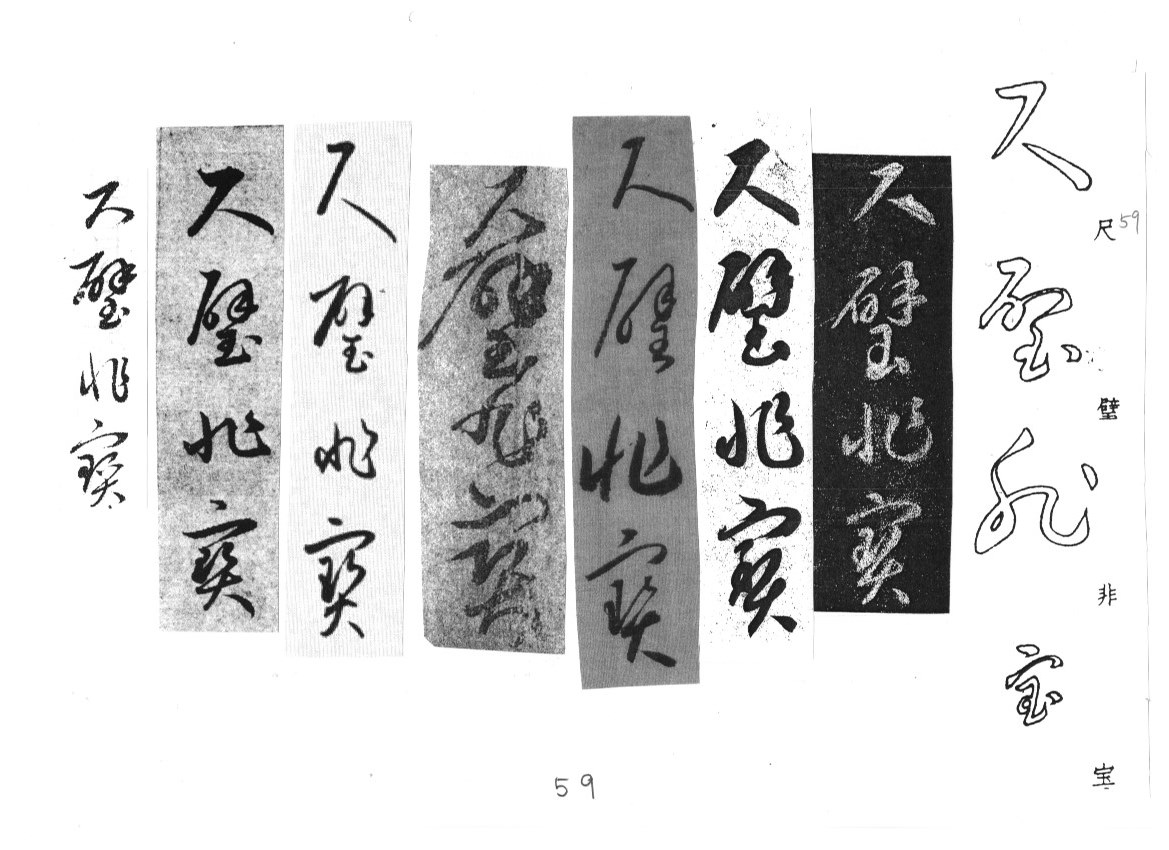 尺璧非寶
尺璧非寶
尺璧非寶
尺璧非寶
尺璧非寶
尺璧非寶
尺璧非寶
尺璧非宝
尺 59
璧
非
宝
59